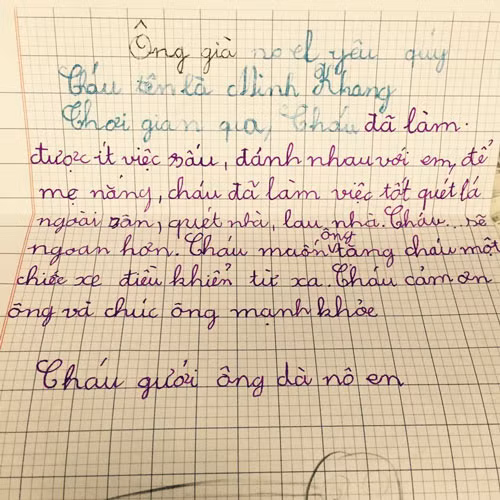 Ông già no el yêu quíy
Cháu tên là Minh Khang
Thơi gian qua, Cháu đã làm.
được ít việc sấu, đánh nhau với em, để
mẹ nắng, cháu đã làm việc tốt quét lá
ngoài sân, quét nhà, lau nhà. Cháu sẽ
ngoan hơn. Cháu muốn ông tăng cháu một
chiếc xe điều khiển từ xa. Cháu cảm ơn
ông và chúc ông mạnh khỏe
Cháu gưới ông dà nô en